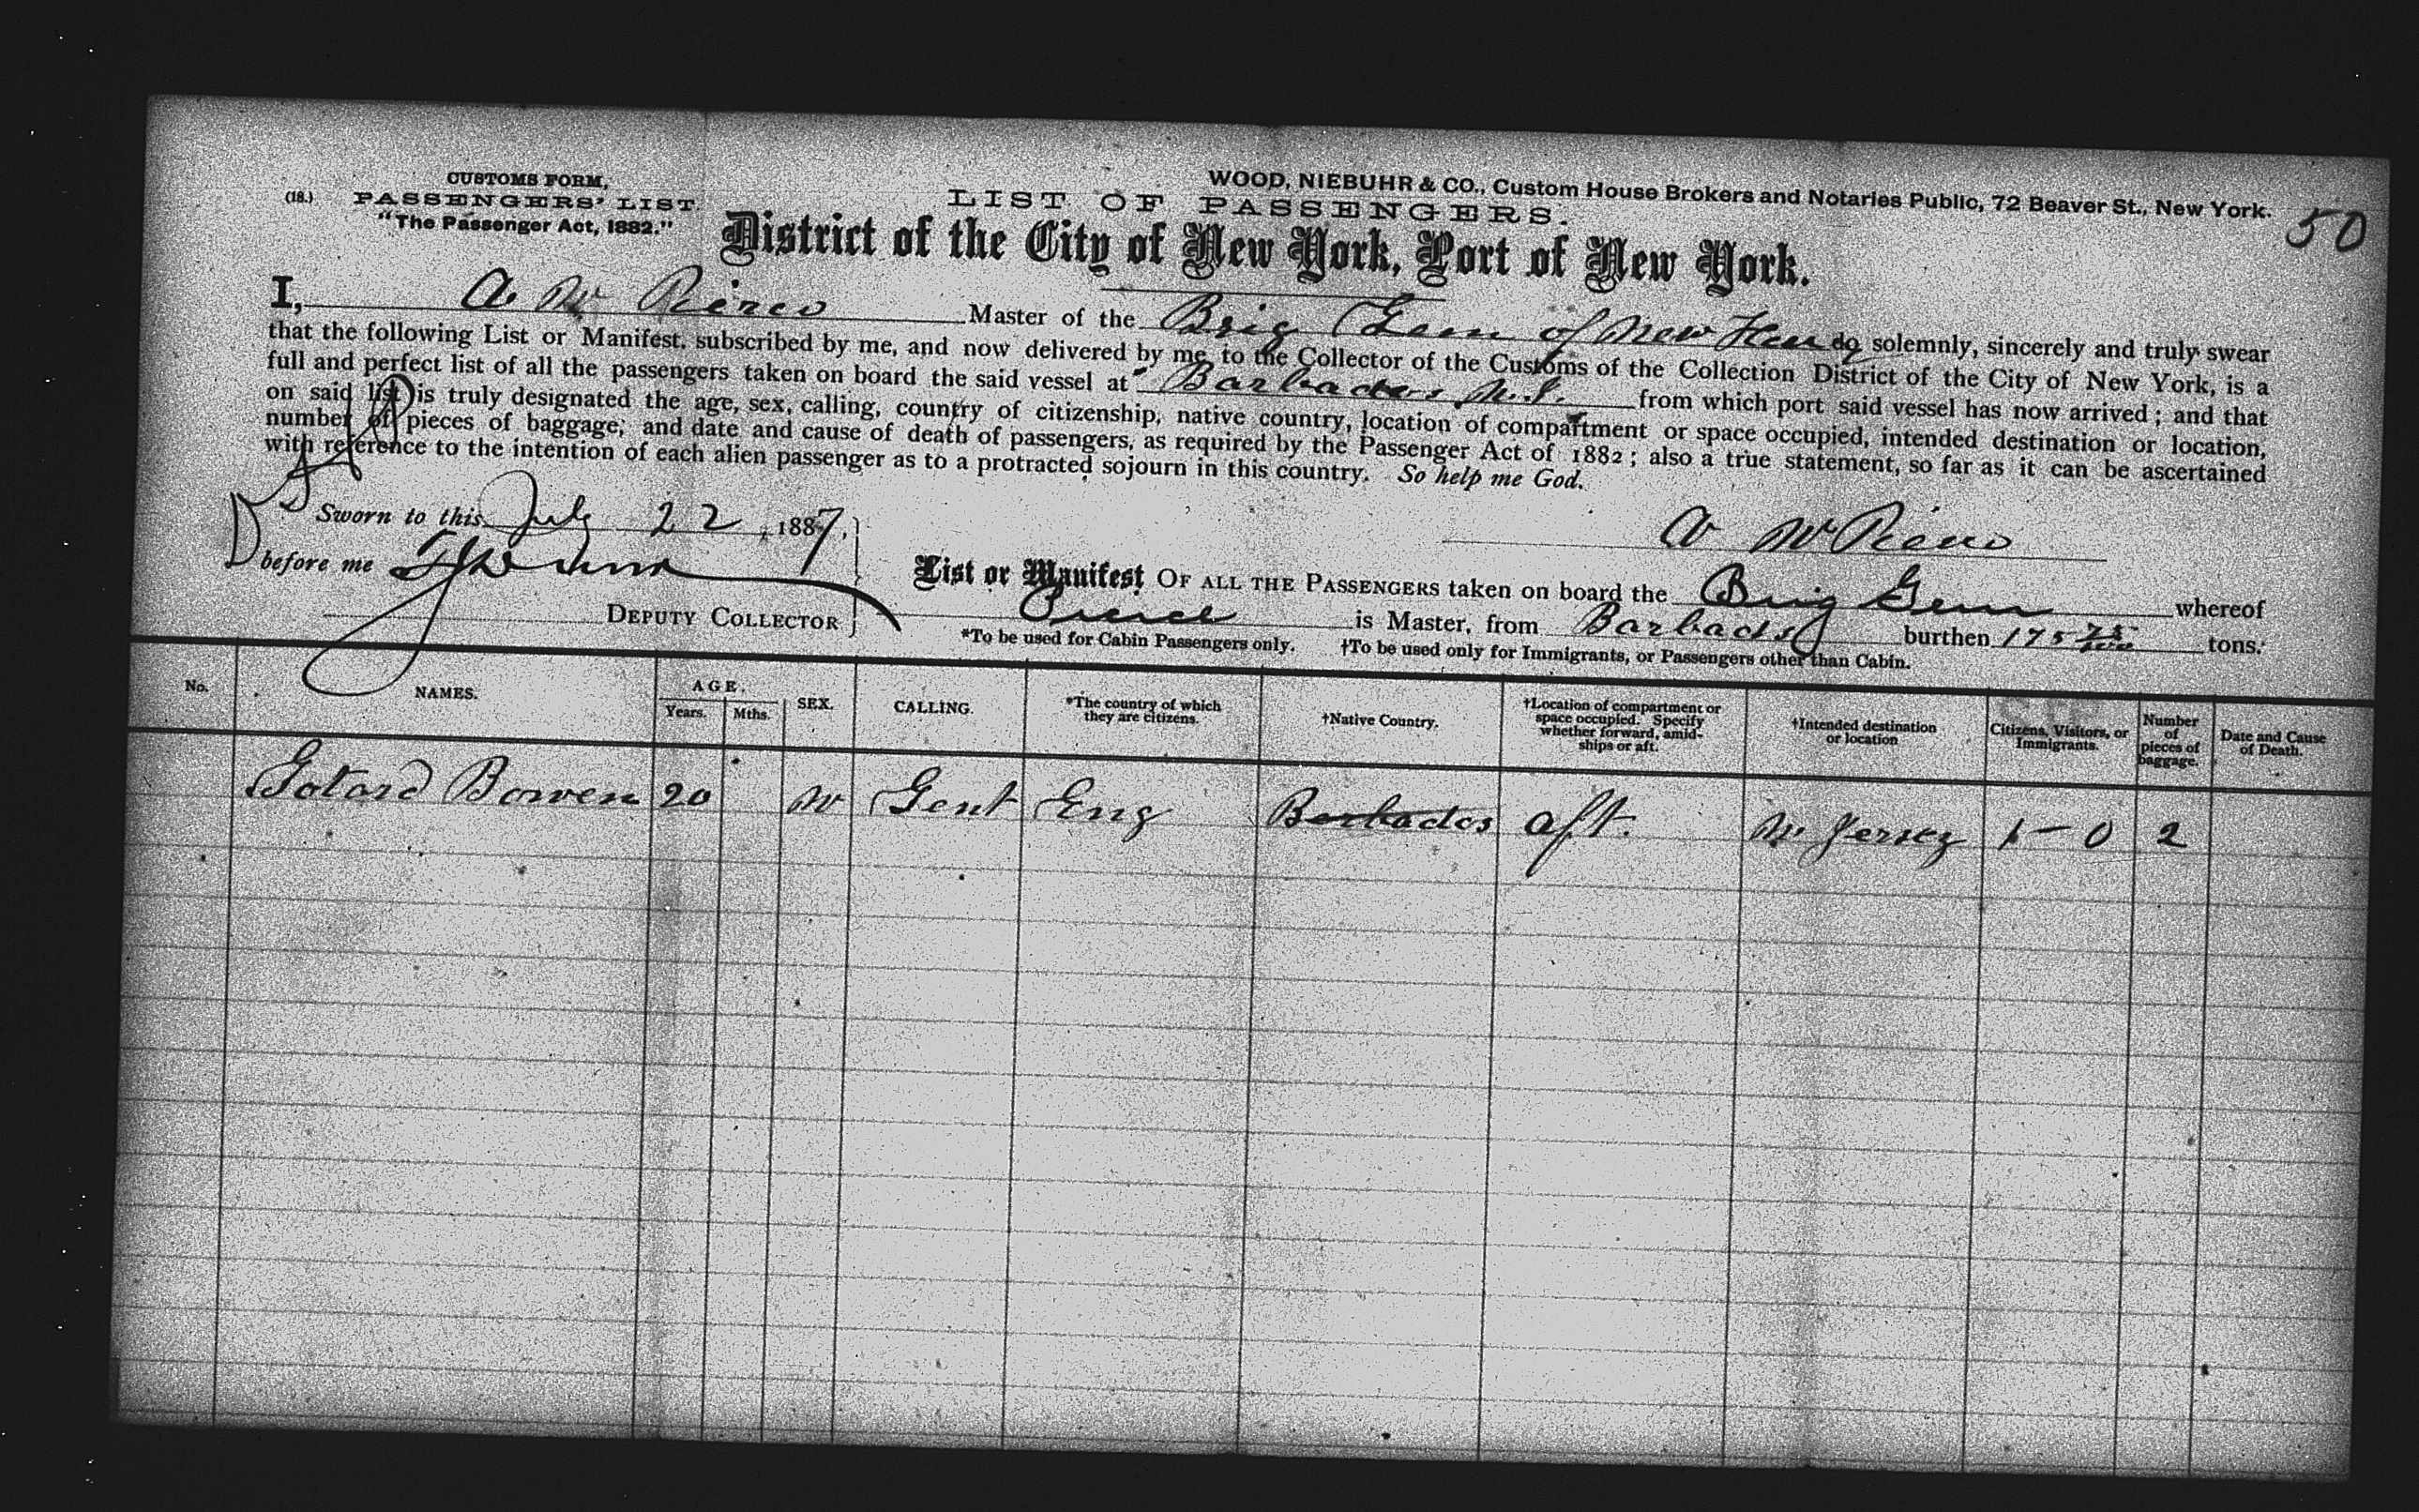 CUSTOMS FORM,
(18.) PASSENGERS' LIST.
"The Passenger Act, 1882."
WOOD, NIEBUHR & CO., Custom House Brokers and Notaries Public, 72 Beaver St., New York.
50
LIST OF PASSENGERS.
District of the City of New York, Port of New York.
I, A. W Master of the Brig Gem of New do solemnly, sincerely and truly swear
that the following List or Manifest, subscribed by me, and now delivered by me to the Collector of the Customs of the Collection District of the City of New York, is a
full and perfect list of all the passengers taken on board the said vessel at Barbados from which port said vessel has now arrived; and that
on said list is truly designated the age, sex, calling, country of citizenship, native country, location of compartment or space occupied, intended destination or location,
number of pieces of baggage; and date and cause of death of passengers, as required by the Passenger Act of 1882; also a true statement, so far as it can be ascertained
with reference to the intention of each alien passenger as to a protracted sojourn in this country. So help me God.
Sworn to this July 22, 1887,
A W
before me
DEPUTY COLLECTOR
List or Manifest OF ALL THE PASSENGERS taken on board the Brig Gem whereof
Pierce is Master, from Barbados burthen 175 75/100 tons.
*To be used for Cabin Passengers only. †To be used only for Immigrants, or Passengers other than Cabin.
No. NAMES. AGE. Years. Mths. SEX. CALLING. *The country of which they are citizens. †Native Country. †Location of compartment or space occupied. Specify whether forward, amidships or aft. †Intended destination or location Citizens, Visitors, or Immigrants. Number of pieces of baggage. Date and Cause of Death.
Gotard Bowen 20 M Gent Eng Barbados aft. N. Jersey 1-0 2